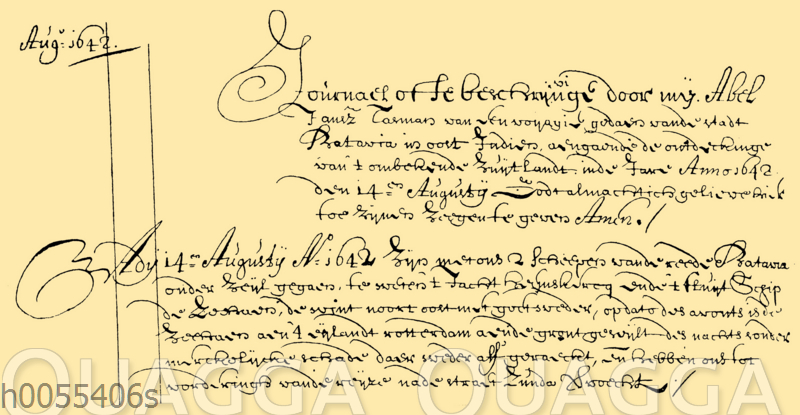 Augu: 1642.
Journael ofte beschrijvinge door mij. Abel
Jansz Tasman van een voyagie, gedaen vande stadt
Batavia in oost Indien, aengaende de ontdeckinge
van 't onbekende Zuijtlandt, inde Jare Anno 1642.
den 14.en Augustij Godt almachtich gelieve hier
toe Zijnen Zeegen te geven Amen. /
Ady 14.en Augustij Ao. 1642 Zijn met ons 2 scheepen vande reede Batavia
onder Zeijl gegaen, te weten 't Jacht heijmskercq ende 't fluijt Schip
de Zeehaen, de wint noort oost met goet weder, op dato des avonts is de
Zeehaen aen't eijlandt rotterdam aende gront geweest, des nachts sonder
merckelijcke schade daer weder aff, geraeckt, en hebben ons tot
vorderingh vande reijze nade straet Zunda / /
QUAGGA QUAGGA QUAGGA
h0055406s